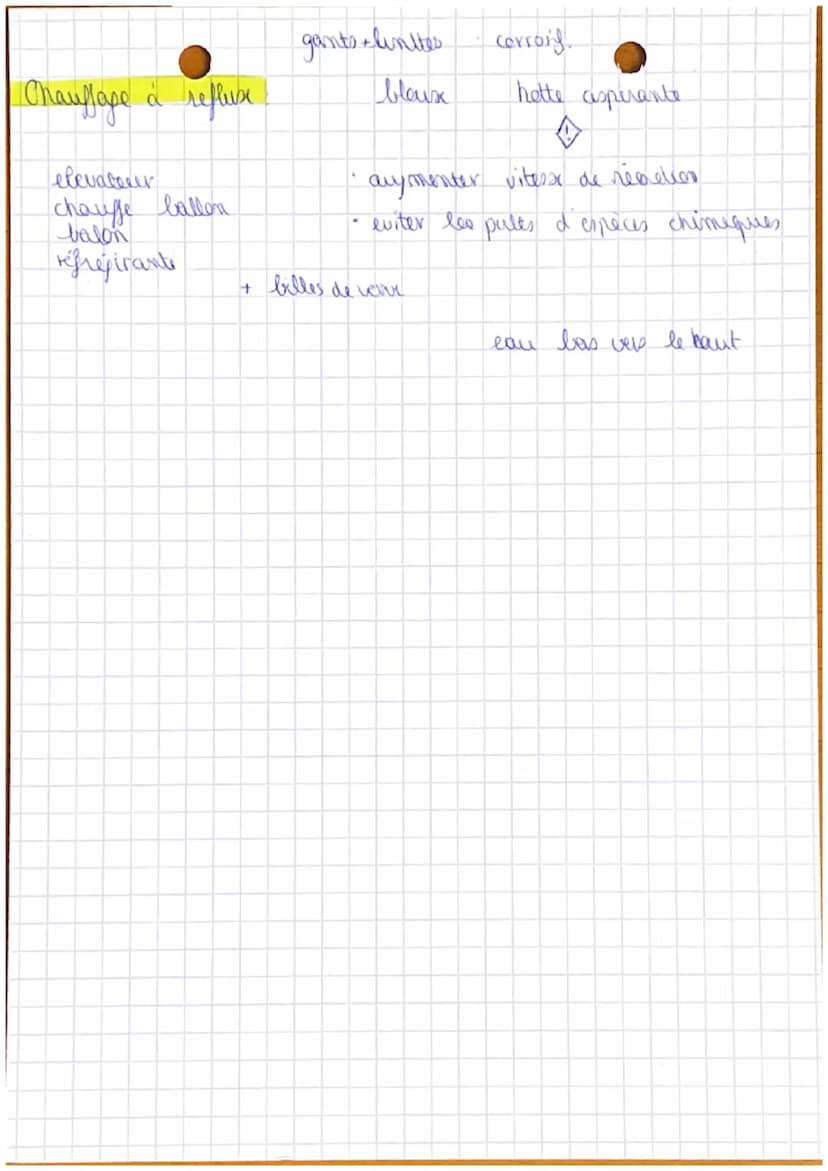 gants + lunttes corrosif.
Chauffage à reflux blouse hotte aspirante
!
elevateur
chauffe ballon
balon
réfrégirante
+ billes de verre
· augmenter vitesse de réaction
· eviter les pertes d'espèces chimiques
eau bas vers le haut